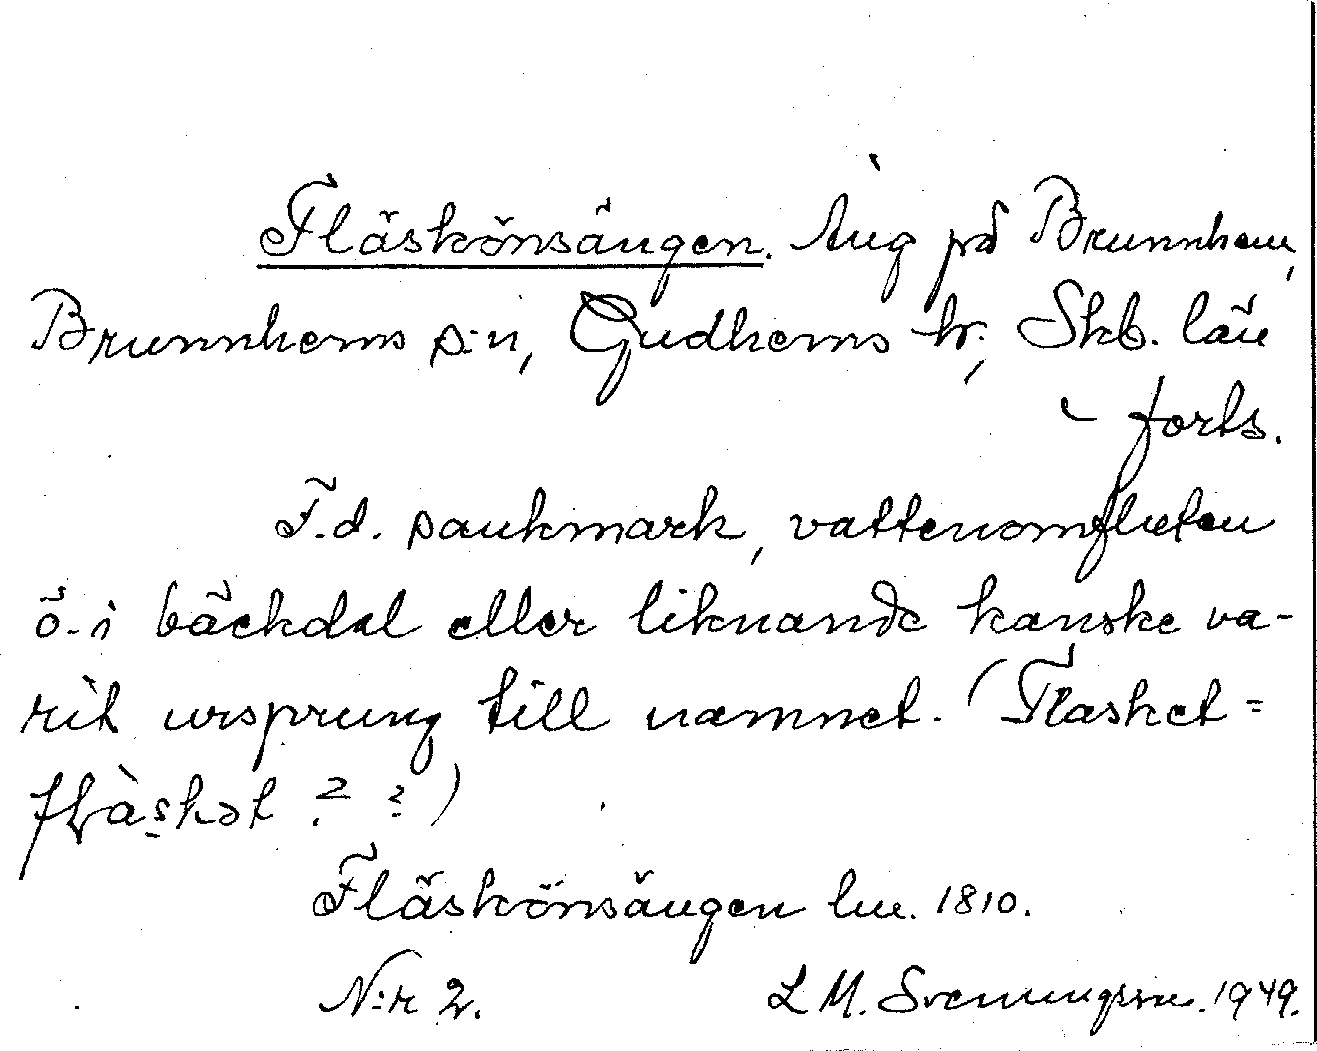 Fläskönsängen. Äng på Brunnhem,
Brunnhems s:n, Gudhems hr., Skb. län
- forts.
F.d. sankmark, vattenomfluten
ö i bäckdal eller liknande kanske va-
rit ursprung till namnet. (Flasket =
flàskət ? ?)
Fläskönsängen lm. 1810.
N:r 2. L M. Svenungsson. 1949.